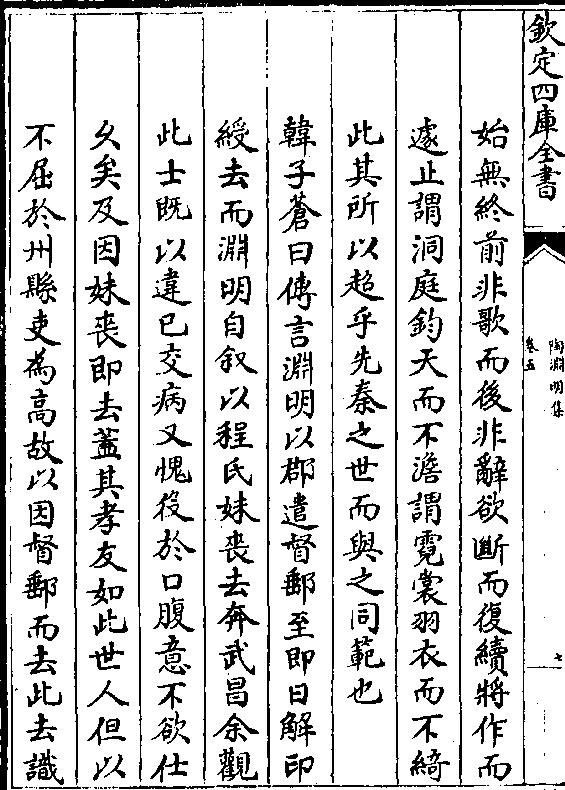 欽定四庫全書
陶淵明集
卷五
七
始無終前非歌而後非辭欲斷而復續將作而
遽止謂洞庭鈞天而不澹謂霓裳羽衣而不綺
此其所以超乎先秦之世而與之同範也
韓子蒼曰傳言淵明以郡遣督郵至即日解印
綬去而淵明自叙以程氏妹喪去奔武昌余觀
此士既以違己交病又愧役於口腹意不欲仕
久矣及因妹喪即去蓋其孝友如此世人但以
不屈於州縣吏為高故以因督郵而去此去識